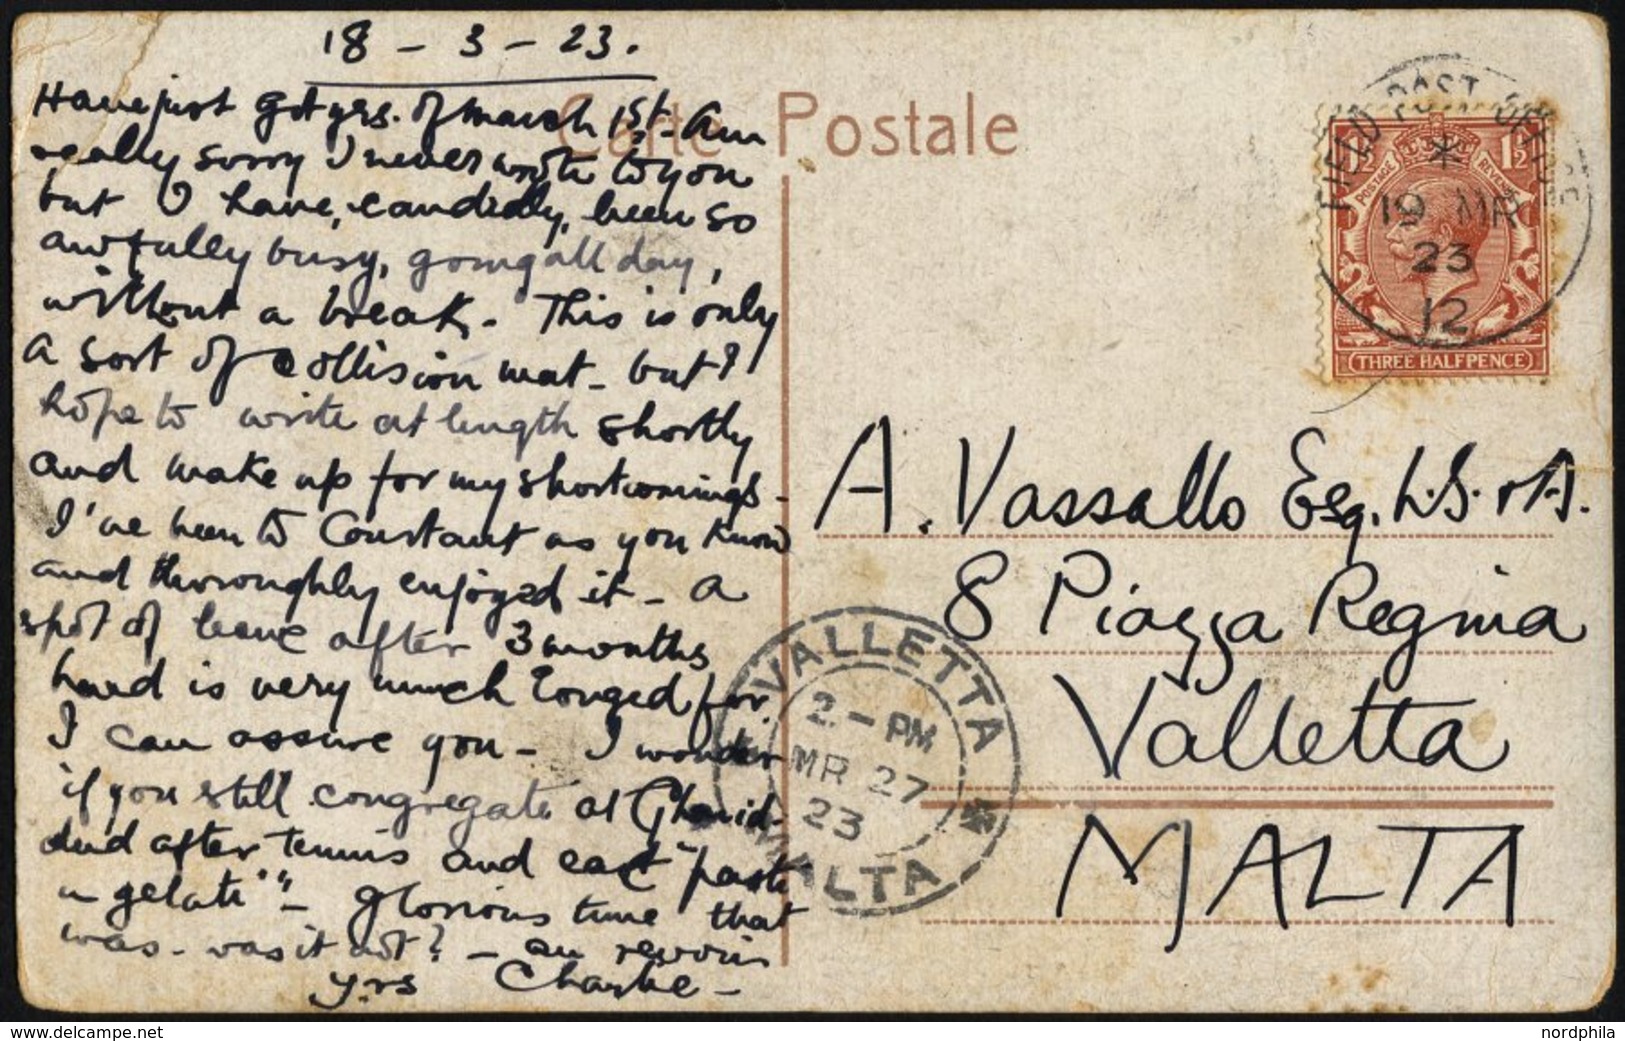 18 - 3 - 23.
Have just got yrs. of March 1st - Am
really sorry I never wrote to you
but I have, candidly, been so
awfully busy, going all day,
without a break. This is only
a sort of collision mat - but I
hope to write at length shortly
and make up for my shortcomings -
I've been to Constant as you know
and thoroughly enjoyed it - a
spot of leave after 3 months
hard is very much longed for
I can assure you - I wonder
if you still congregate at Ghavid -
and after tennis and eat "paste
e gelati" - glorious time that
was - was it not? - au revoir
yrs Charlie -
Carte Postale
FIELD POST OFFICE
*
19 MR
23
12
POSTAGE REVENUE
1½ 1½
THREE HALFPENCE
A. Vassallo Esq. L.S. & A.
8 Piazza Regina
Valletta
MALTA
VALLETTA
2 - PM
MR 27
23
MALTA
nordphila